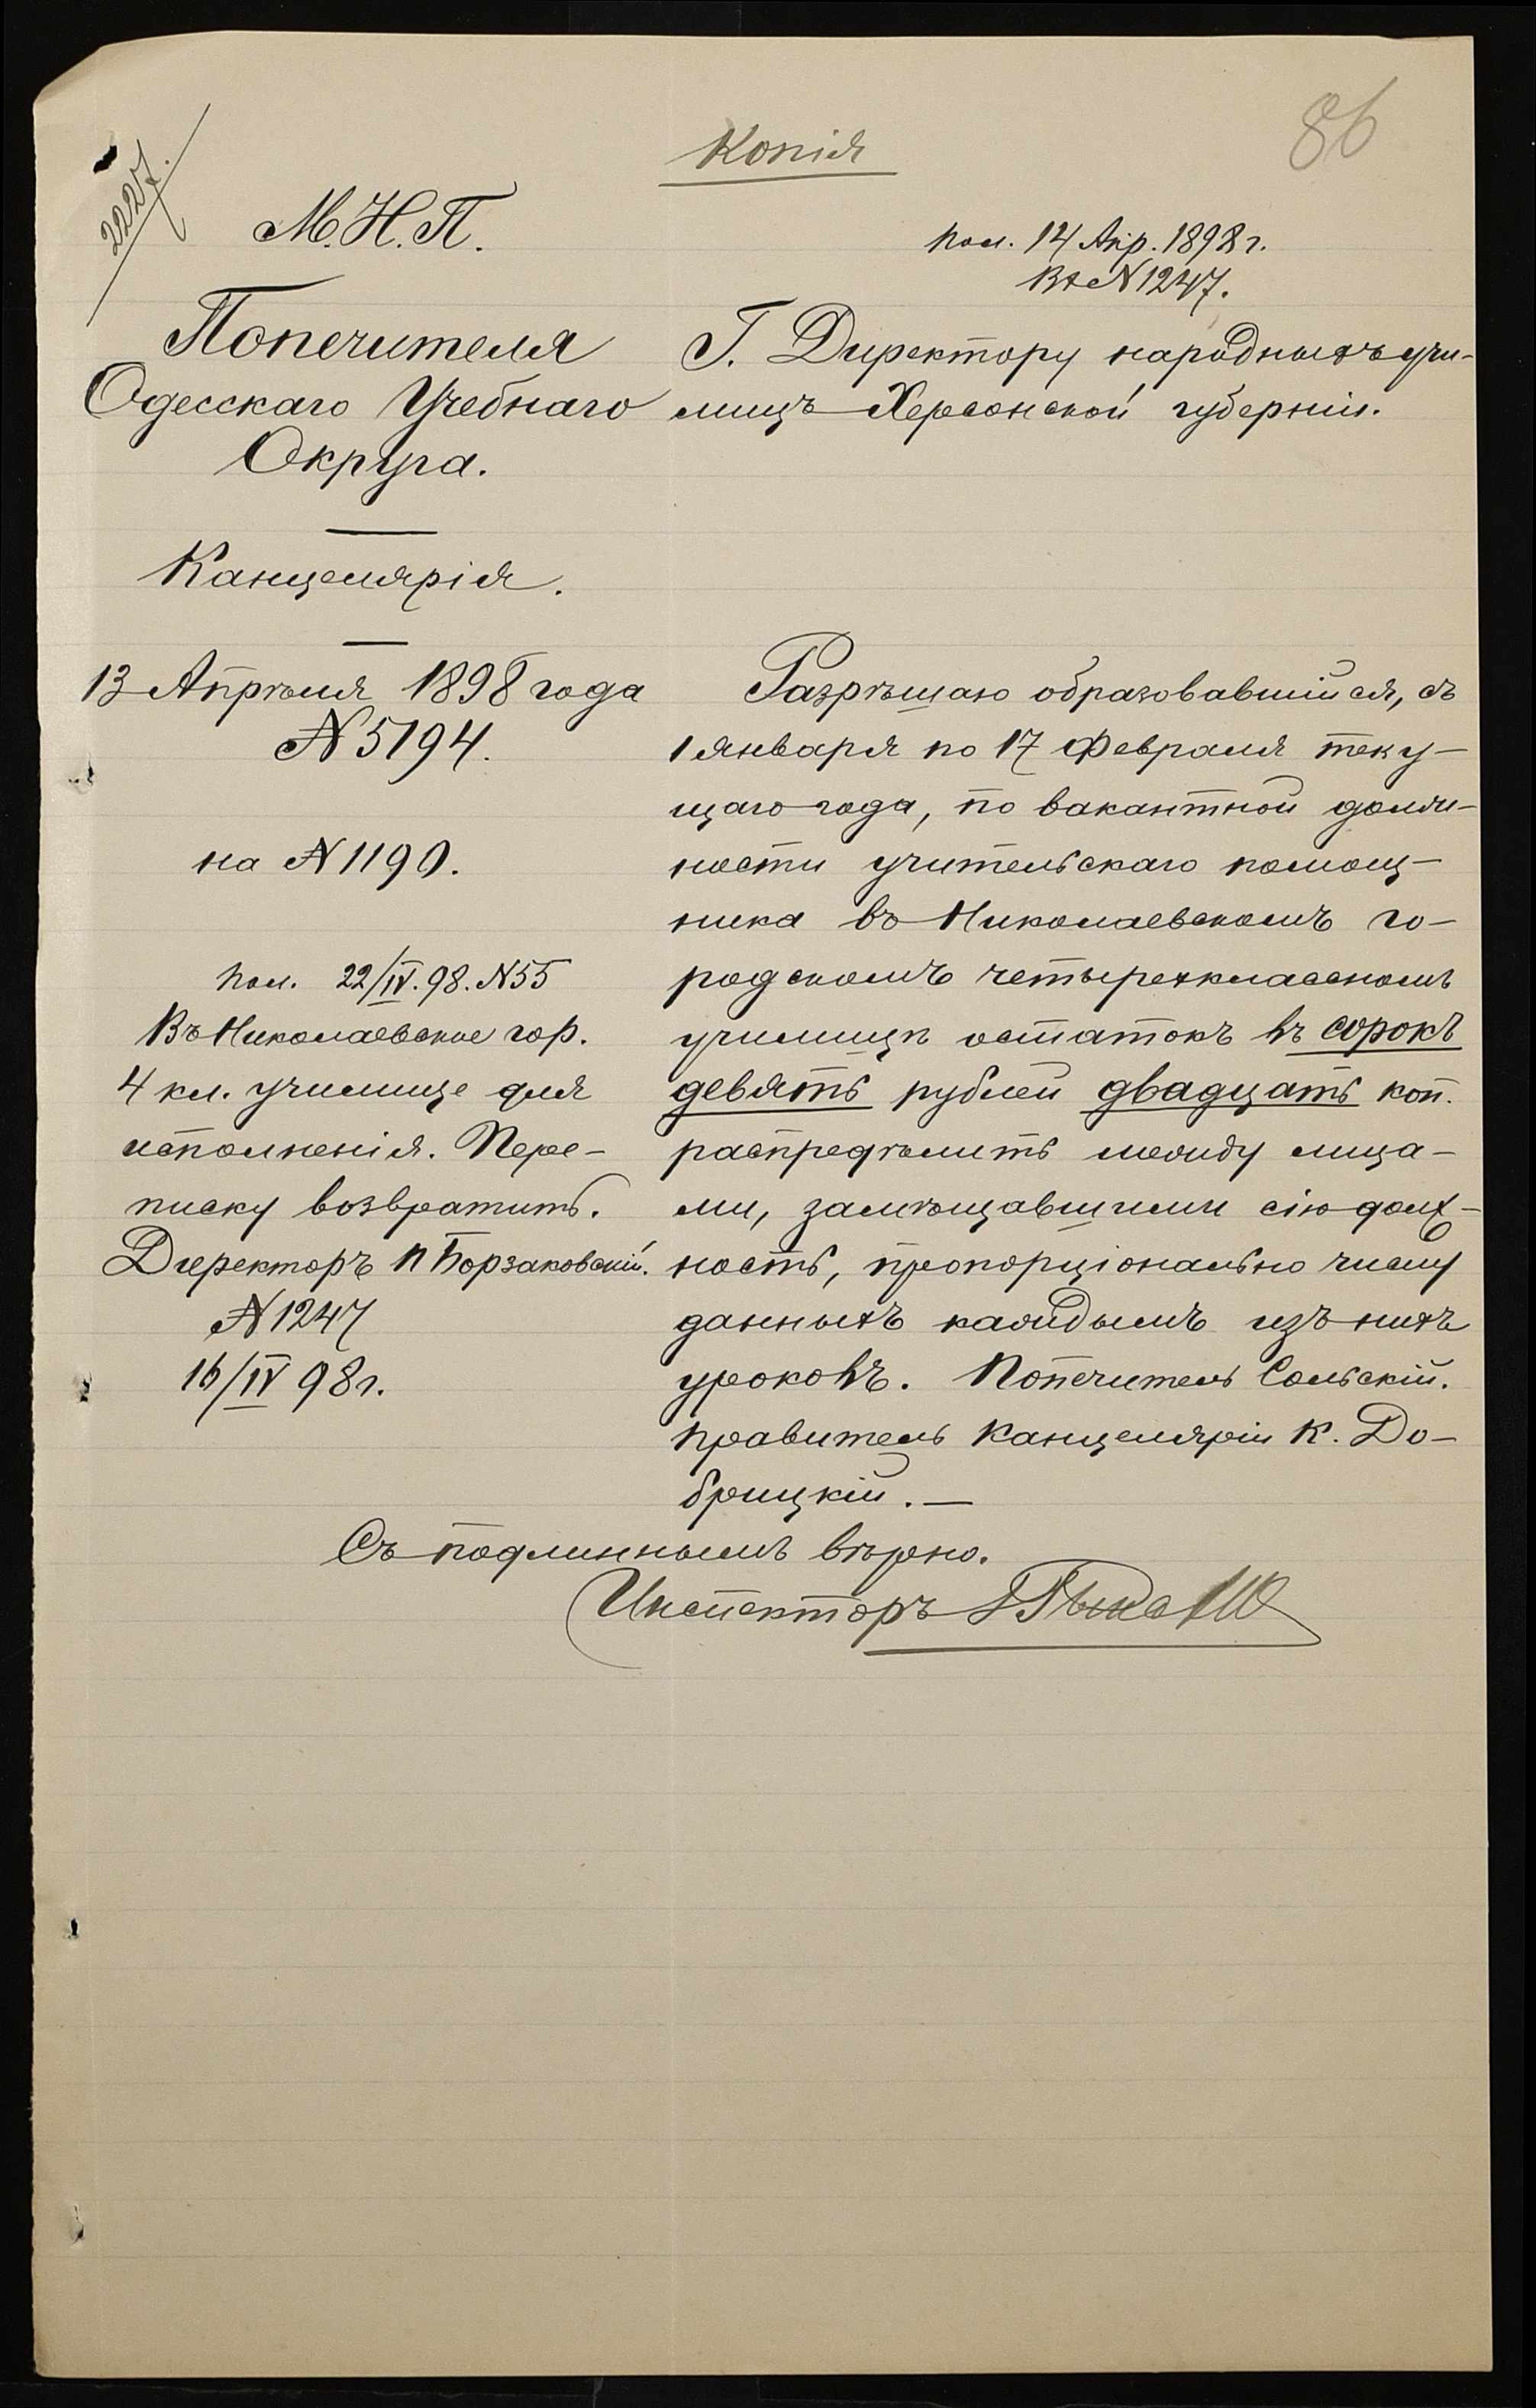 Копія
86
2227.
М. Н. П.
Попечителя
Одесскаго Учебнаго
Округа.
Канцелярія.
13 Апрѣля 1898 года
№ 5194.
на № 1190.
Пол. 22/IV. 98. № 55
Въ Николаевское гор.
4 кл. училище для
исполненія. Пере-
писку возвратить.
Директоръ П Борзаковскій.
№ 1247
16/IV 98 г.
Пол. 14 Апр. 1898 г.
Вх № 1247.
Г. Директору народныхъ учи-
лищъ Херсонской губерніи.
Разрѣшаю образовавшійся, съ
1 января по 17 февраля теку-
щаго года, по вакантной долж-
ности учительскаго помощ-
ника въ Николаевскомъ го-
родскомъ четырехклассномъ
училищѣ остатокъ въ сорокъ
девять рублей двадцать коп.
распредѣлить между лица-
ми, замѣщавшими сію долж-
ность, пропорціонально числу
данныхъ каждымъ изъ нихъ
уроковъ. Попечитель Сольскій.
Правитель Канцеляріи К. До-
брицкій. —
Съ подлиннымъ вѣрно.
Инспекторъ